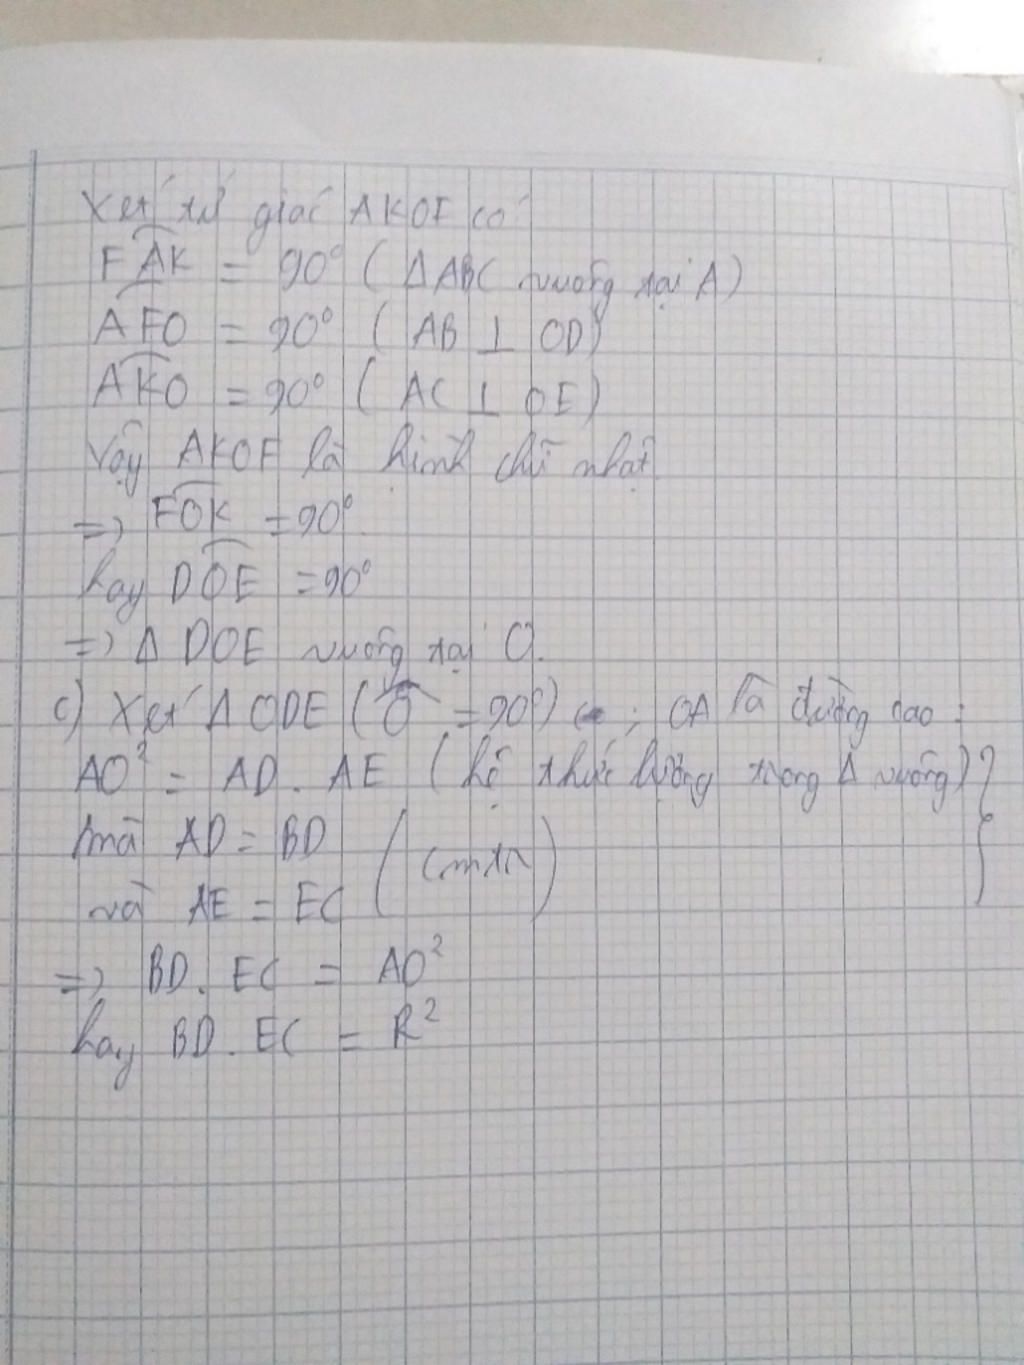 Xét tứ giác AKOF có:
FAK = 90° (ΔABC vuông tại A)
AFO = 90° (AB ⊥ OD)
AKO = 90° (AC ⊥ OE)
Vậy AKOF là hình chữ nhật.
=> FOK = 90°.
hay DOE = 90°
=> Δ DOE vuông tại O.
c) Xét Δ ODE (Ô = 90°) ; OA là đường cao:
AO² = AD. AE (hệ thức lượng trong Δ vuông) }
mà AD = BD
và AE = EC (cmtr)
=> BD. EC = AO²
hay BD. EC = R²